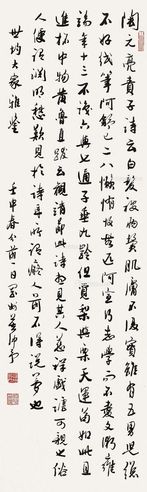 陶元亮責子詩云白髮被兩鬢肌膚不復實雖有五男兒總
不好紙筆阿舒已二八懶惰故無匹阿宣行志學而不愛文術雍
端年十三不識六與七通子垂九齡但覓梨與栗天運苟如此且
進杯中物黃魯直跋云觀淵明此詩想見其人慈祥戲謔可觀也俗
人便謂淵明愁歎見於詩耳所謂癡人前不得說夢也
世均大家雅鑒
壬申春分前一日